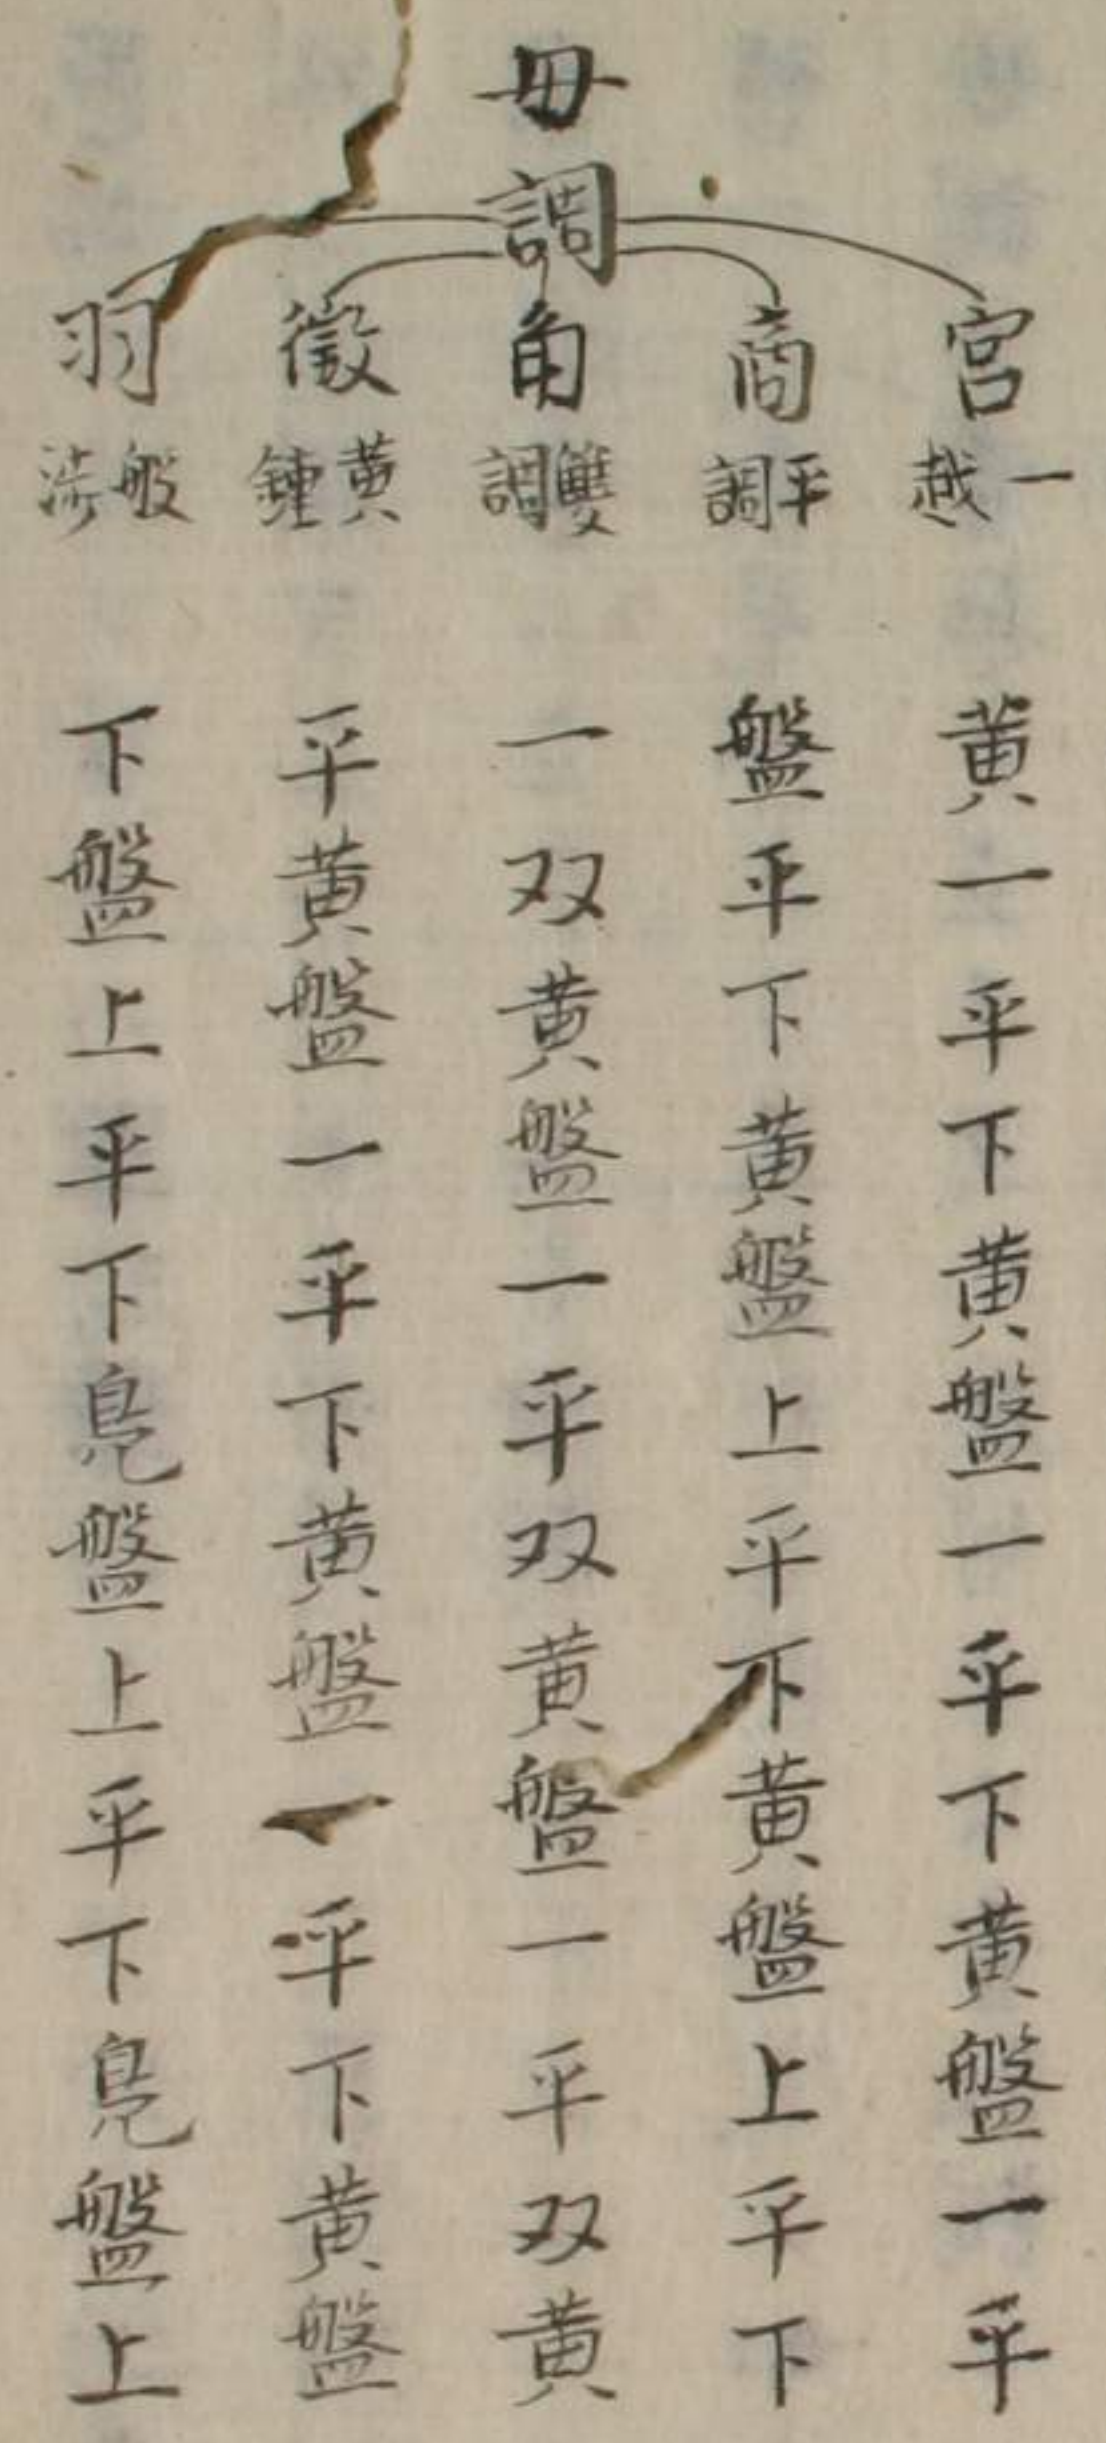 母調
宮一越
黄一平下黄盤一平下黄盤一平
商平調
盤平下黄盤上平下黄盤上平下
角雙調
一双黄盤一平双黄盤一平双黄
徵黄鍾
平黄盤一平下黄盤一平下黄盤
羽般涉
下盤上平下鳬盤上平下鳬盤上